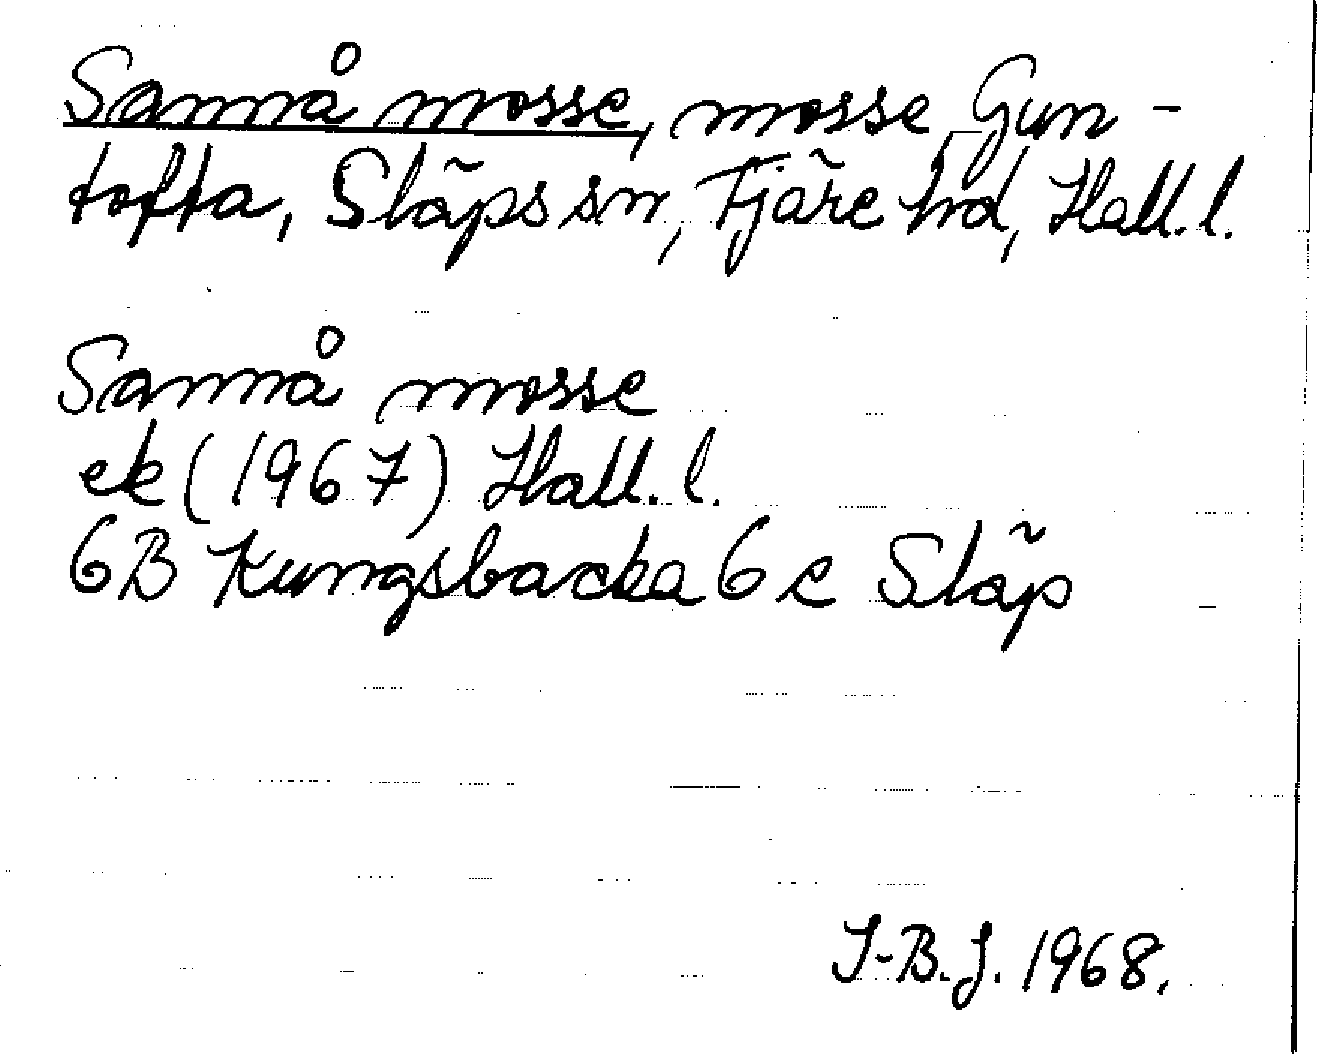 Sannå mosse, mosse, Gun-
tofta, Släps sn, Fjäre hd, Hall. l.
Sannå mosse
ek (1967) Hall. l.
6B Kungsbacka 6 e Släp
I-B.J. 1968.